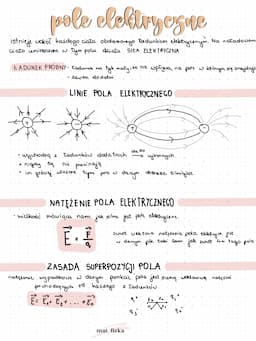 pole elektryczne
istnieje wokół każdego ciała obdarzonego ładunkiem elektrycznym. Na naładowane
ciało umieszczone w tym polu działa SIŁA ELEKTRYCZNA
ŁADUNEK PRÓBNY - ładunek na tyle mały, że nie wpływa na pole w którym się znajduje
- zawsze dodatni
LINIE POLA ELEKTRYCZNEGO
• wychodzą z ładunków dodatnich do ujemnych
• nigdy się nie przecinają
• im gęściej ułożone tym pole w danym obszarze silniejsze
NATĘŻENIE POLA ELEKTRYCZNEGO
• wielkość mówiąca nam jak silne jest pole elektryczne
E = F/q
zwrot wektora natężenia pola elektrycznego jest
w danym polu taki sam jak zwrot linii tego pola
ZASADA SUPERPOZYCJI POLA
natężenie wypadkowe w danym punkcie pola jest sumą wektorową natężeń
pochodzących od każdego z ładunków
E = E₁ + E₂ + ... + Eₙ